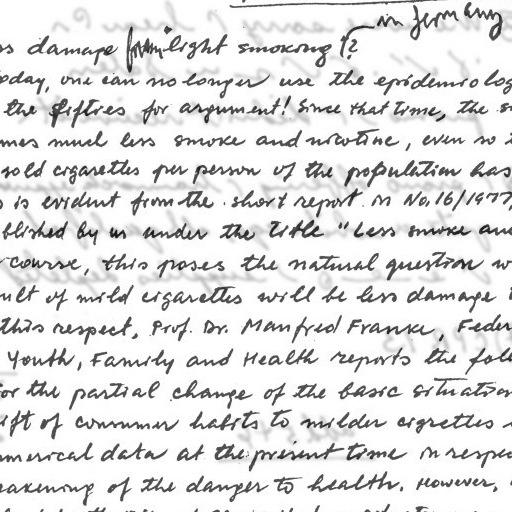 in Germany
ss damage from light smoking ?
oday, one can no longer use the epidemiolog
the fifties for argument! Since that time, the s
mes much less smoke and nicotine, even so t
sold cigarettes per person of the population has
s is evident from the short report in No. 16/1977,
blished by us under the title "Less smoke and
course, this poses the natural question w
ult of mild cigarettes will be less damage t
this respect, Prof. Dr. Manfred Franke, Feder
Youth, Family and Health reports the foll
for the partial change of the basic situation
ift of consumer habits to milder cigrettes
umerical data at the present time in respec
eakening of the danger to health. However,